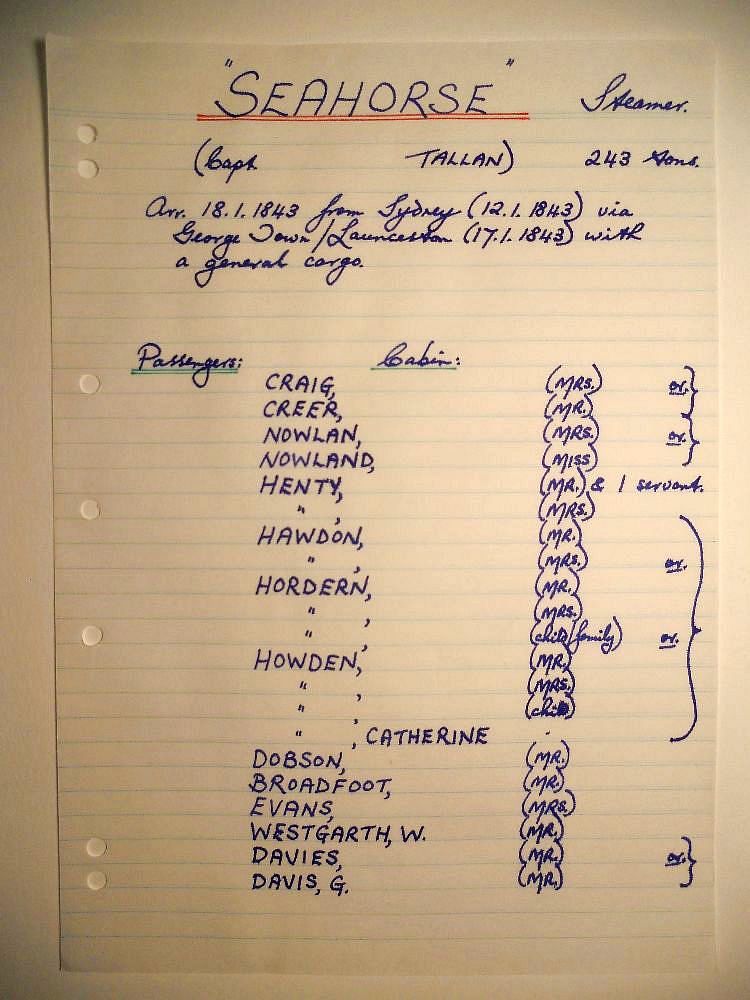 "SEAHORSE" Steamer.
(Capt TALLAN) 243 tons.
Arr. 18.1.1843 from Sydney (12.1.1843) via
George Town/Launceston (17.1.1843) with
a general cargo.
Passengers: Cabin:
CRAIG, (MRS.) or.}
CREER, (MR.)
NOWLAN, (MRS.) or.}
NOWLAND, (MISS)
HENTY, (MR.) & 1 servant.
" , (MRS.)
HAWDON, (MR.)
" , (MRS.) or.
HORDERN, (MR.)
" , (MRS.)
" , (child/family) or. }
HOWDEN, (MR.)
" , (MRS.)
" , (child)
" , CATHERINE
DOBSON, (MR.)
BROADFOOT, (MR.)
EVANS, (MRS.)
WESTGARTH, W. (MR.)
DAVIES, (MR.) or.}
DAVIS, G. (MR.)